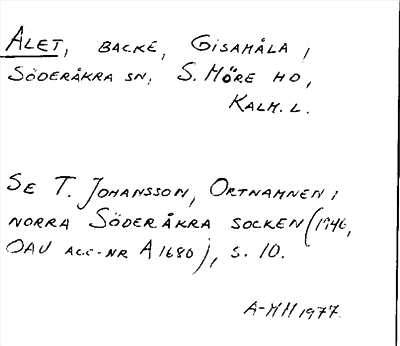 ALET, BACKE, GISAMÅLA,
SÖDERÅKRA SN, S. MÖRE HD,
KALM. L.
SE T. JOHANSSON, ORTNAMNEN I
NORRA SÖDERÅKRA SOCKEN (1946,
OAU ACC-NR A 1680), S. 10.
A-MH 1977.